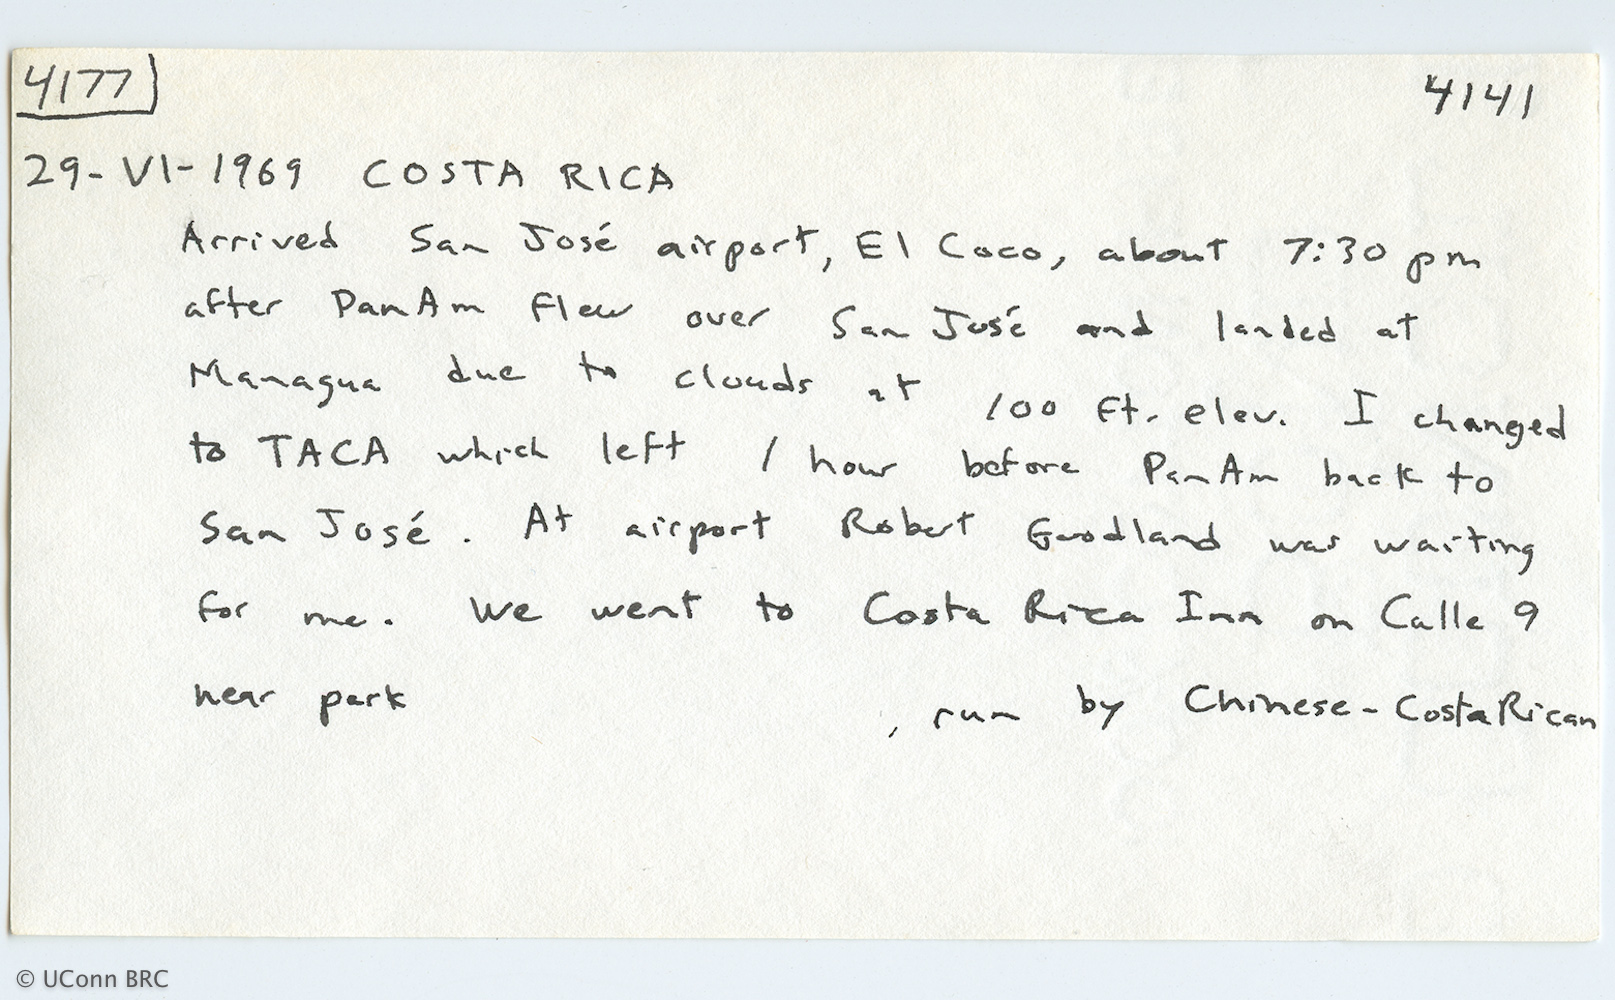 4177 4141
29-VI-1969 COSTA RICA
Arrived San José airport, El Coco, about 7:30 pm
after PanAm flew over San José and landed at
Managua due to clouds at 100 ft. elev. I changed
to TACA which left 1 hour before PanAm back to
San José. At airport Robert Goodland was waiting
for me. We went to Costa Rica Inn on Calle 9
near park , run by Chinese-CostaRican
© UConn BRC